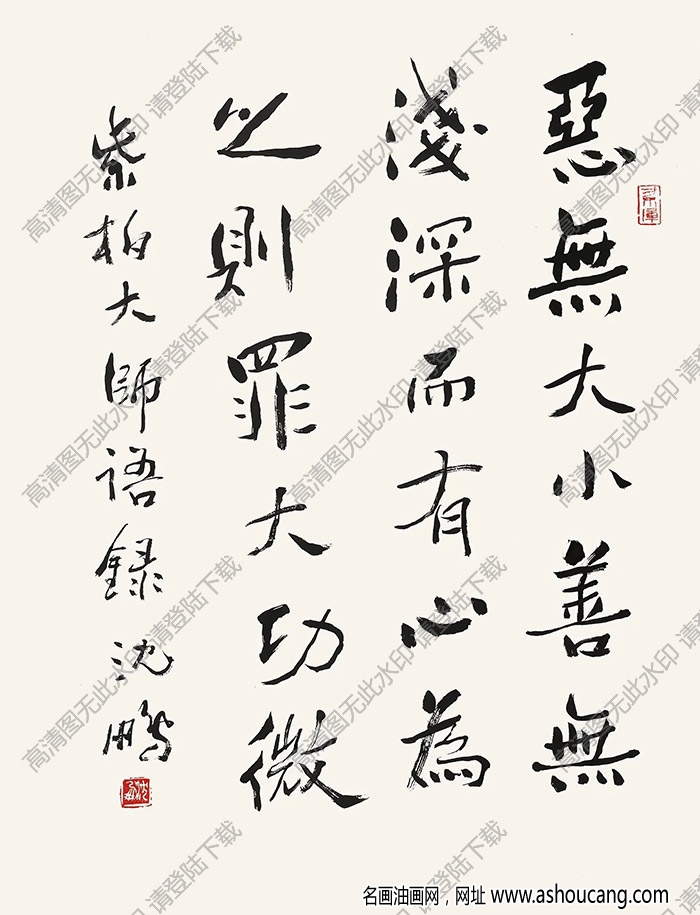 惡無大小善無
淺深而有心為
之則罪大功微
紫柏大師語錄 沈鵬
高清图无此水印 请登陆下载
名画油画网，网址 www.ashoucang.com